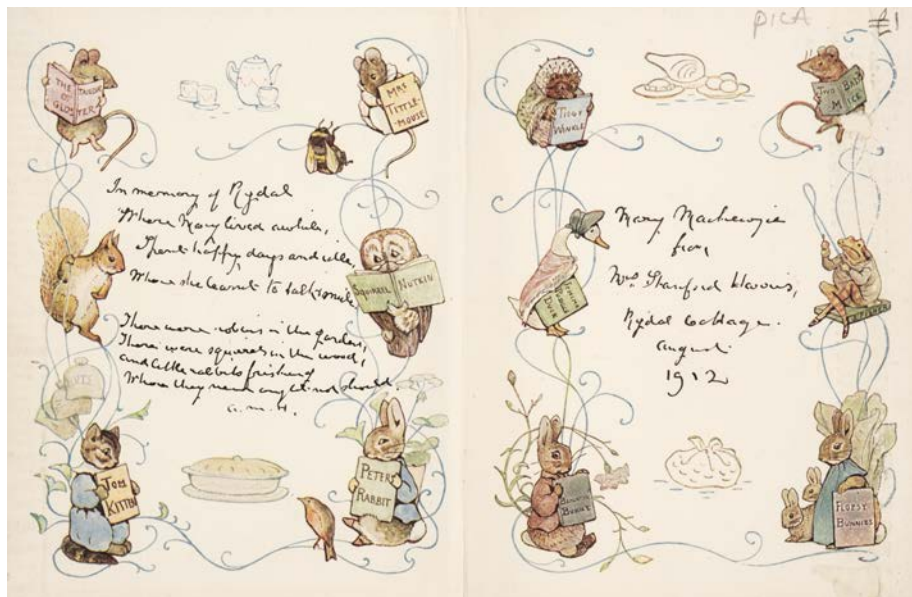 PICA
£1
THE TAILOR
OF
GLOSTER
MRS
TITTLE-
MOUSE
In memory of Rydal
Where Mary lived awhile,
Spent happy days and idle,
Where she learnt to talk & smile
SQUIRREL NUTKIN
There were robins in the garden,
There were squirrels in the wood,
and little rabbits frisking
Where they never ought nor should.
a.m.H.
TOM
KITTEN
PETER
RABBIT
TIGGY
WINKLE
TWO BAD
MICE
Mary Mackenzie
from
Mrs Stanford Harris,
Rydal Cottage.
August
1912
JEMIMA
PUDDLE
DUCK
BENJAMIN
BUNNY
FLOPSY
BUNNIES